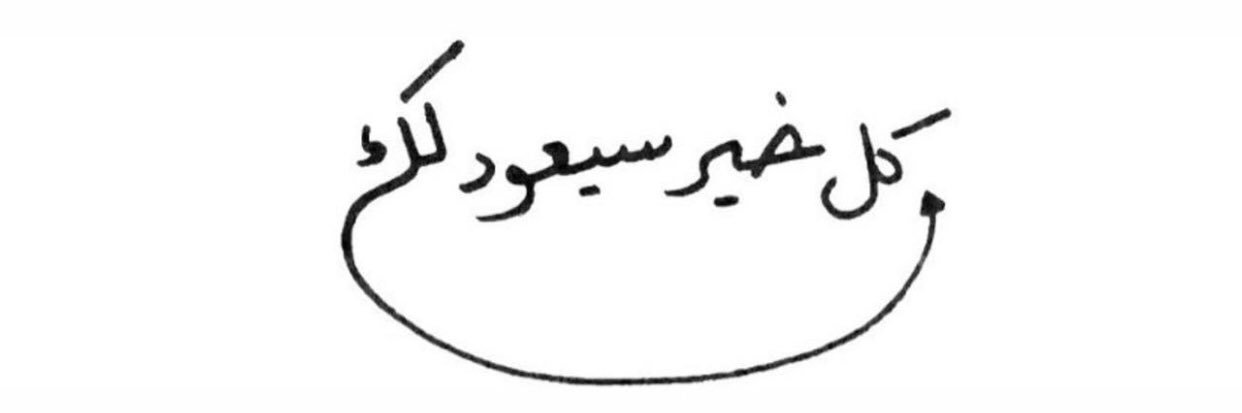 كل خير سيعود لك